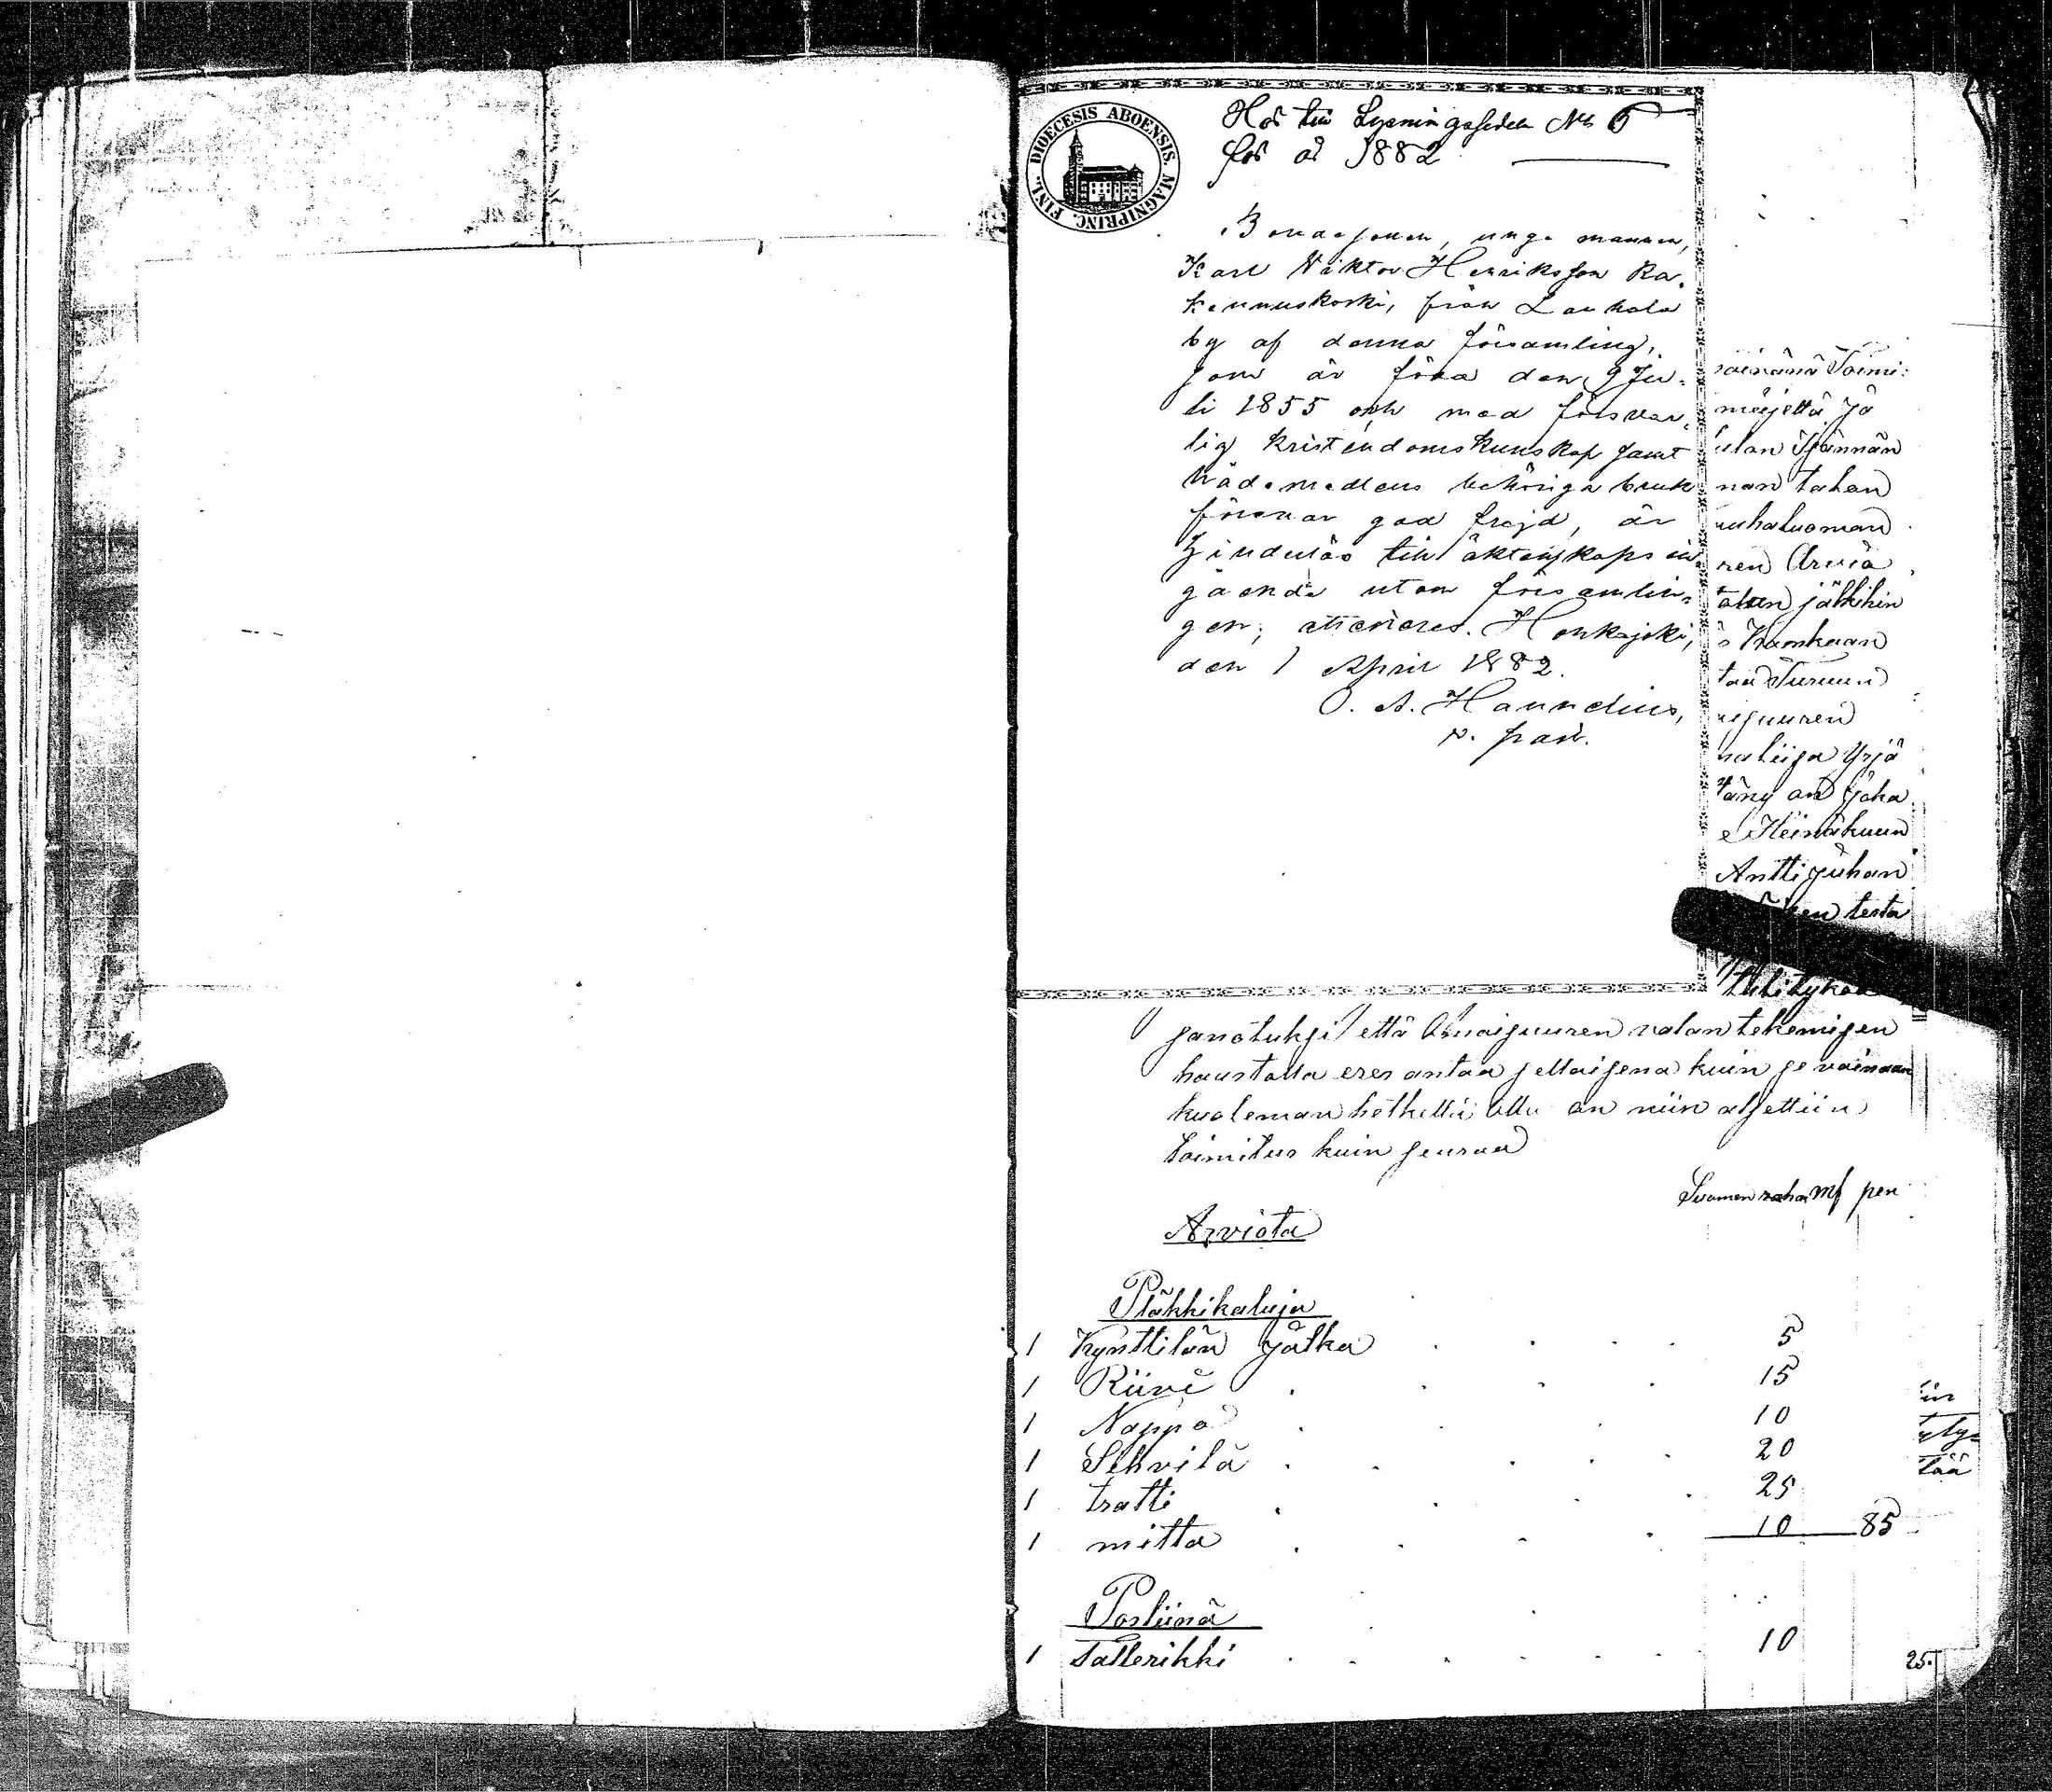 DIOECESIS ABOENSIS. MAGNIPRINC. FINL.
Hör till Lysningssedeln No 6
för år 1882
Bondesonen, unge mannen,
Karl Viktor Henriksson Ra-
kennuskoski, från Lauhala
by af denna församling,
som är född den 9 Ju-
li 1855 och med försvar-
lig kristendomskunskap samt
nådemedlens behöriga bruk
förenar god frejd, är
hinderlös till äktenskaps in-
gående utom församlin-
gen; attesteres. Honkajoki,
den 1 April 1882.
O. A. Hannelius,
v. past.
päivänä Toimi:
määjettä Jo
Isännän
nan talon
rauhaluoman
ren Arvio
talon jälkihin
Kankaan
taa Turuun
rejuuren
Yrjö
on joka
Heinäkuun
Antti Juhan
testa
sanotuksi että Arvoisuuren valan tekemisen
haastolla eres antaa sellaisena kuin se vainaan
kuoleman hetkellä ollu on niin aljettiin
toimitus kuin seuraa
Suomen raha mk pen
Arviota
Pläkkikaluja
1 Kynttilän jalka 5
1 Riivi 15
1 Nappo 10
1 Sihvilä 20
1 tratti 25
1 mitta 10 85
Posliinä
1 Tallerikki 10
tää
25.